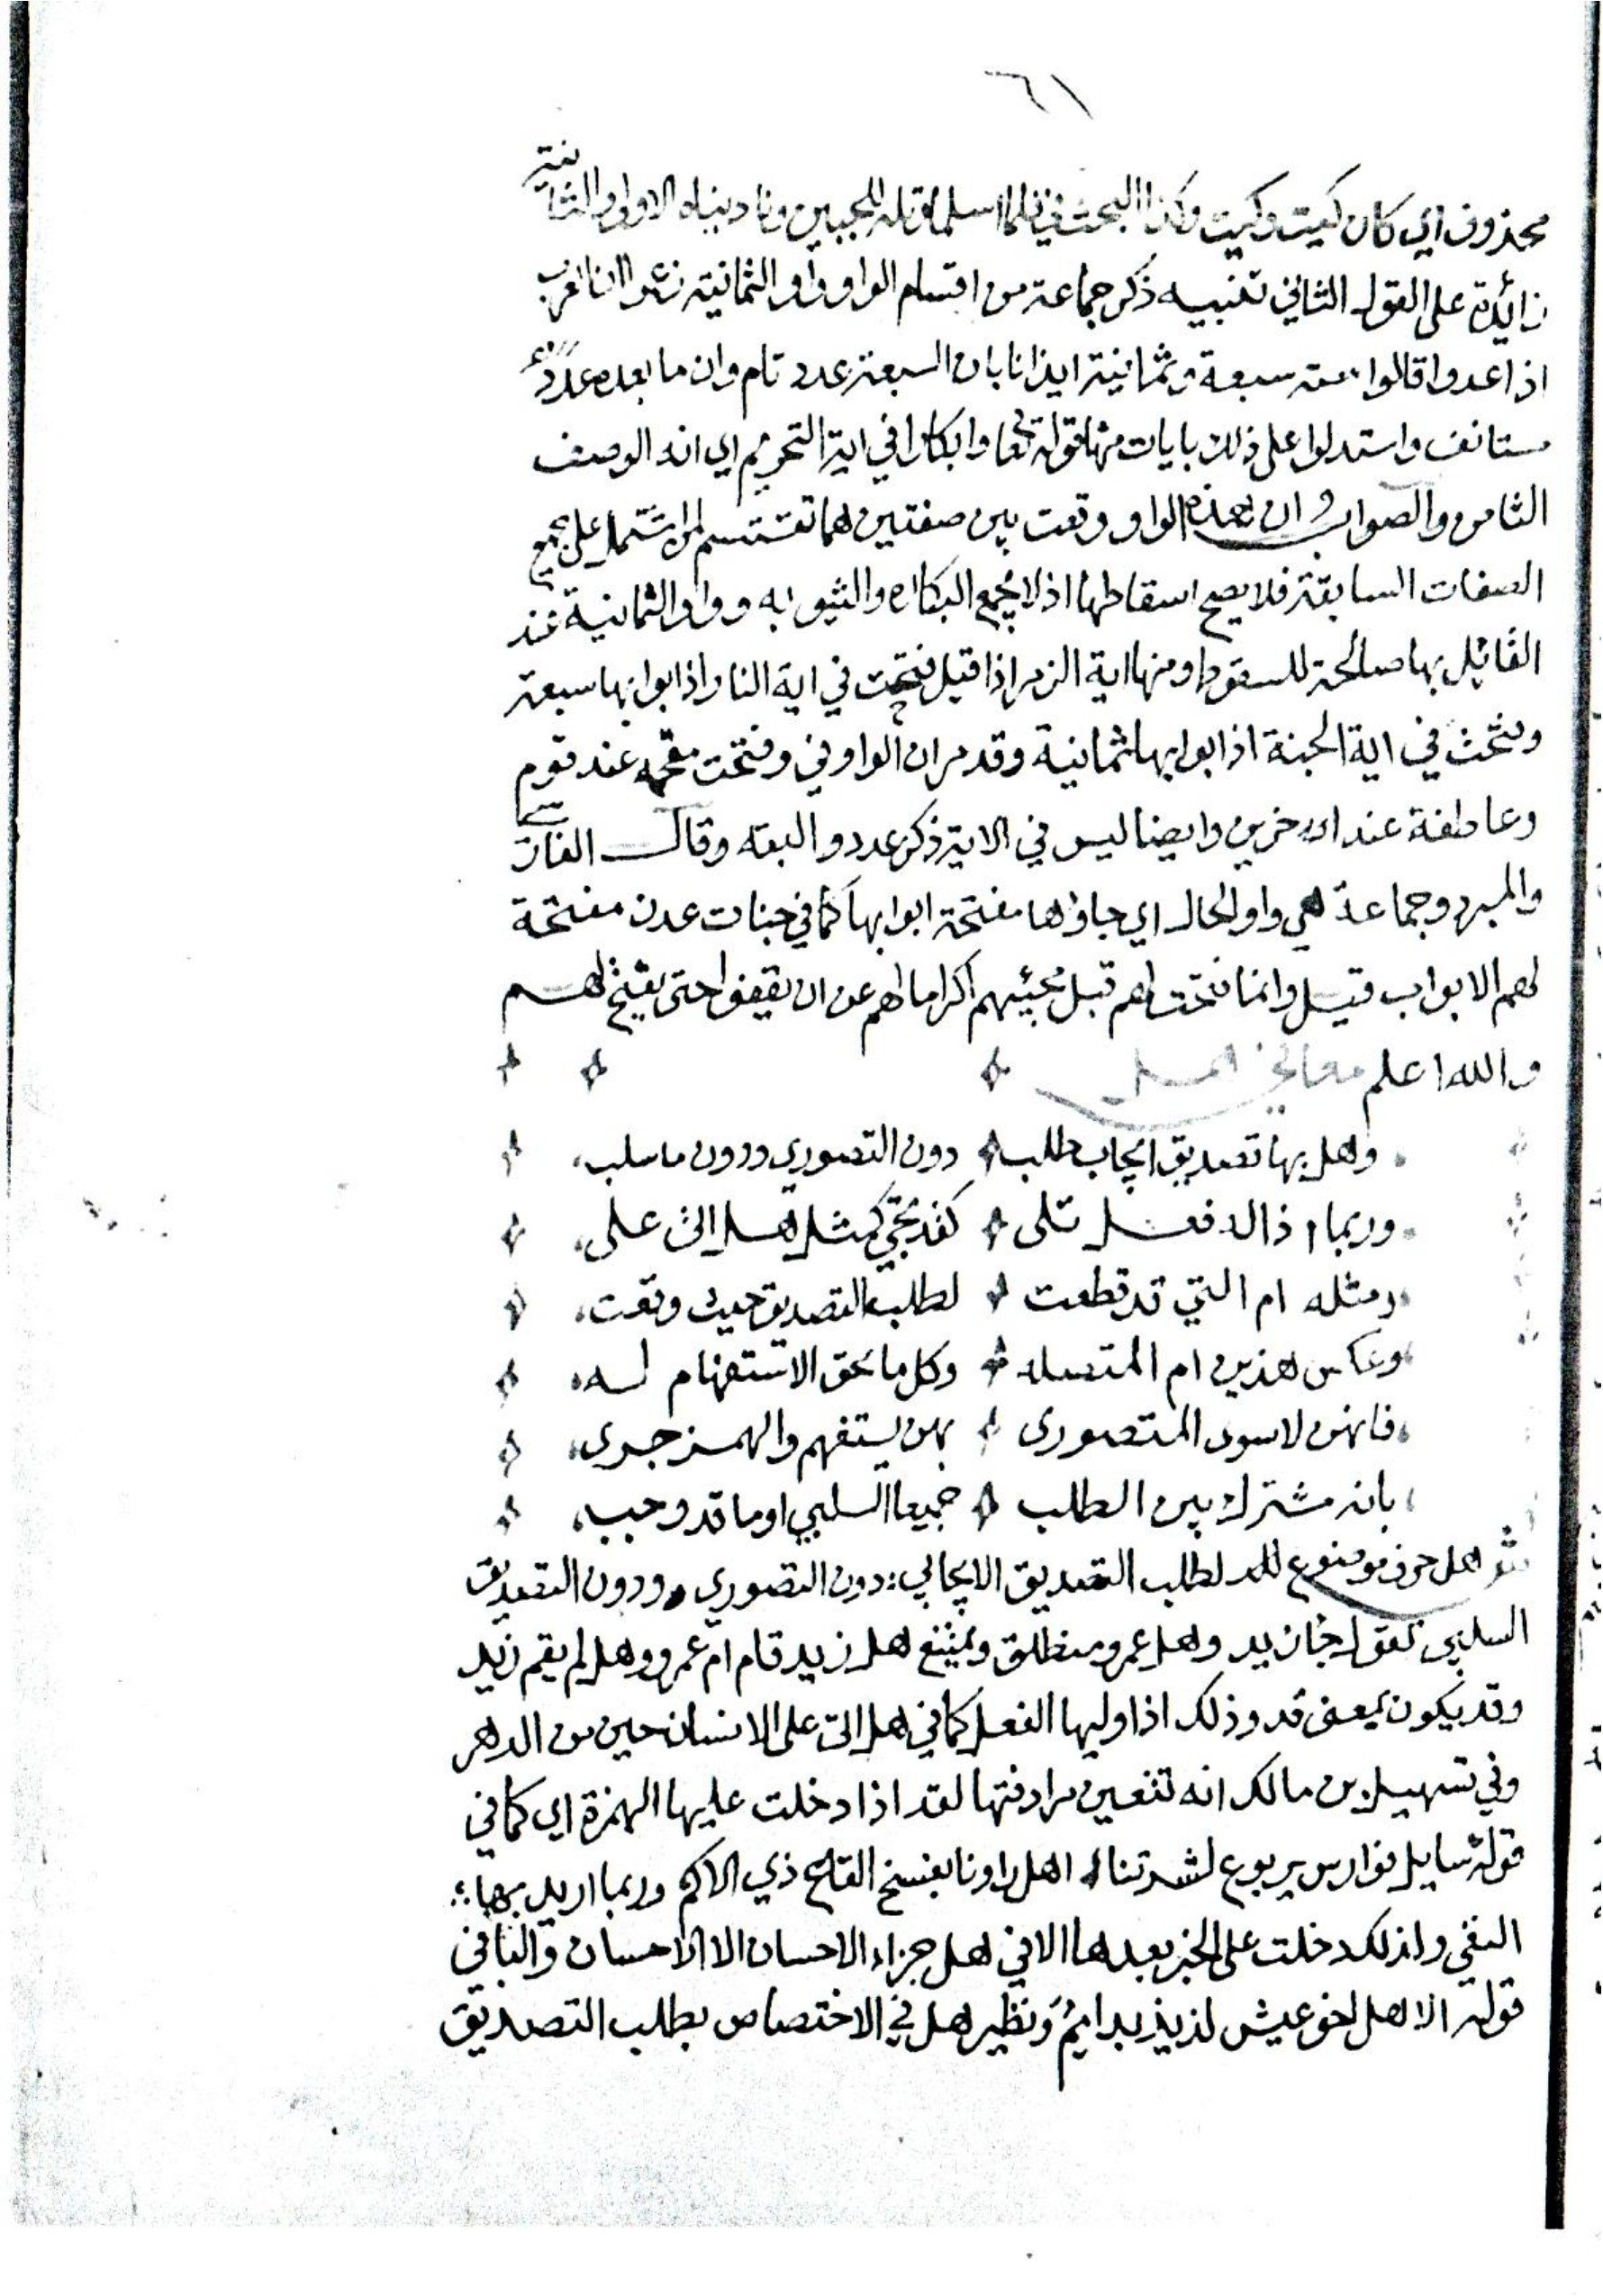 ٦١
محذوف اي كان كيت وكيت وكذا البحث في فلما اسلما وتله للجبين وناديناه الاولى والثانية
زائدة على القول الثاني تنبيه ذكر جماعة من اقسام الواو واو الثمانية زعموا ان العرب
اذا عدوا قالوا ستة سبعة وثمانية ايذانا بان السبعة عدد تام وان ما بعده عدد
مستانف واستدلوا على ذلك بايات منها قوله تعا وابكارا في اية التحريم اي انه الوصف
الثامن والصواب ان هذه الواو وقعت بين صفتين هما تقسيم لمن اشتمل على جميع
الصفات السابقة فلا يصح اسقاطها اذ لا يجمع البكاره والثيوبه وواو الثمانية عند
القائل بها صالحة للسقوط ومنها اية الزمر اذ اقيل فتحت في اية النار اذ ابوابها سبعة
وفتحت في اية الجنة اذ ابوابها ثمانية وقد مر ان الواو في وفتحت مقحمه عند قوم
وعاطفة عند اخرين وايضا ليس في الاية ذكر عدد البته وقال الفارسي
والمبرد وجماعة هي واو الحال اي جاؤها مفتحة ابوابها كما في جنات عدن مفتحة
لهم الابواب قيل وانما فتحت لهم قبل مجيئهم اكراما لهم عن ان يقفوا حتى يفتح لهم
والله اعلم معاني هل
وهل بها تصديق ايجاب طلب دون التصوري ودون ما سلب
وربما اذ الفعل تلى كقد تجي كمثل هل اتى على
ومثله ام التي قد قطعت لطلب التصديق حيث وقعت
وعكس هذين ام المتصله وكل ما بحق الاستفهام له
فانهن لا سوى المتصورى بهن يستفهم والهمز جرى
بانه مشترك بين الطلب جميعا السلبي او ما قد وجب
ش هل حرف موضوع لطلب التصديق الايجابي دون التصوري ودون التصديق
السلبي تقول هل جا زيد وهل عمرو منطلق ويمتنع هل زيد قام ام عمرو وهل لم يقم زيد
وقد يكون بمعنى قد وذلك اذا وليها الفعل كما في هل اتى على الانسان حين من الدهر
وفي تسهيل بن مالك انه تتعين مرادفتها لقد اذا دخلت عليها الهمزة اي كما في
قوله سايل فوارس يربوع لشدتنا اهل راونا بفسخ القاع ذي الاكم وربما اريد بها
النفي ولذلك دخلت على الخبر بعدها الا في هل جزاء الاحسان الا الاحسان والبا في
قوله الا هل اخو عيش لذيذ بدايم ونظير هل في الاختصاص بطلب التصديق